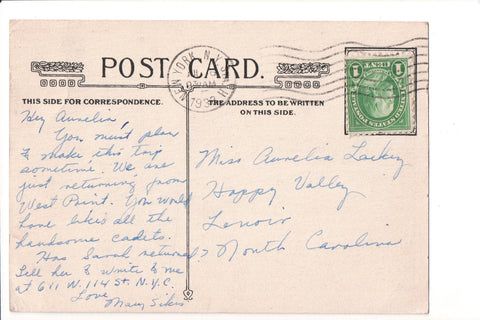 POST CARD.
NEW YORK, N.Y.
193
THIS SIDE FOR CORRESPONDENCE.
THE ADDRESS TO BE WRITTEN
ON THIS SIDE.
Hey Aurelia,
You must plan
to make this trip
sometime. We are
just returning from
West Point. You would
have liked all the
handsome cadets.
Has Sarah returned?
Tell her to write to me
at 611 W. 114 St. N.Y.C.
Love
Mary
Miss Aurelia
Happy Valley
Lenoir
North Carolina
1 CENT 1